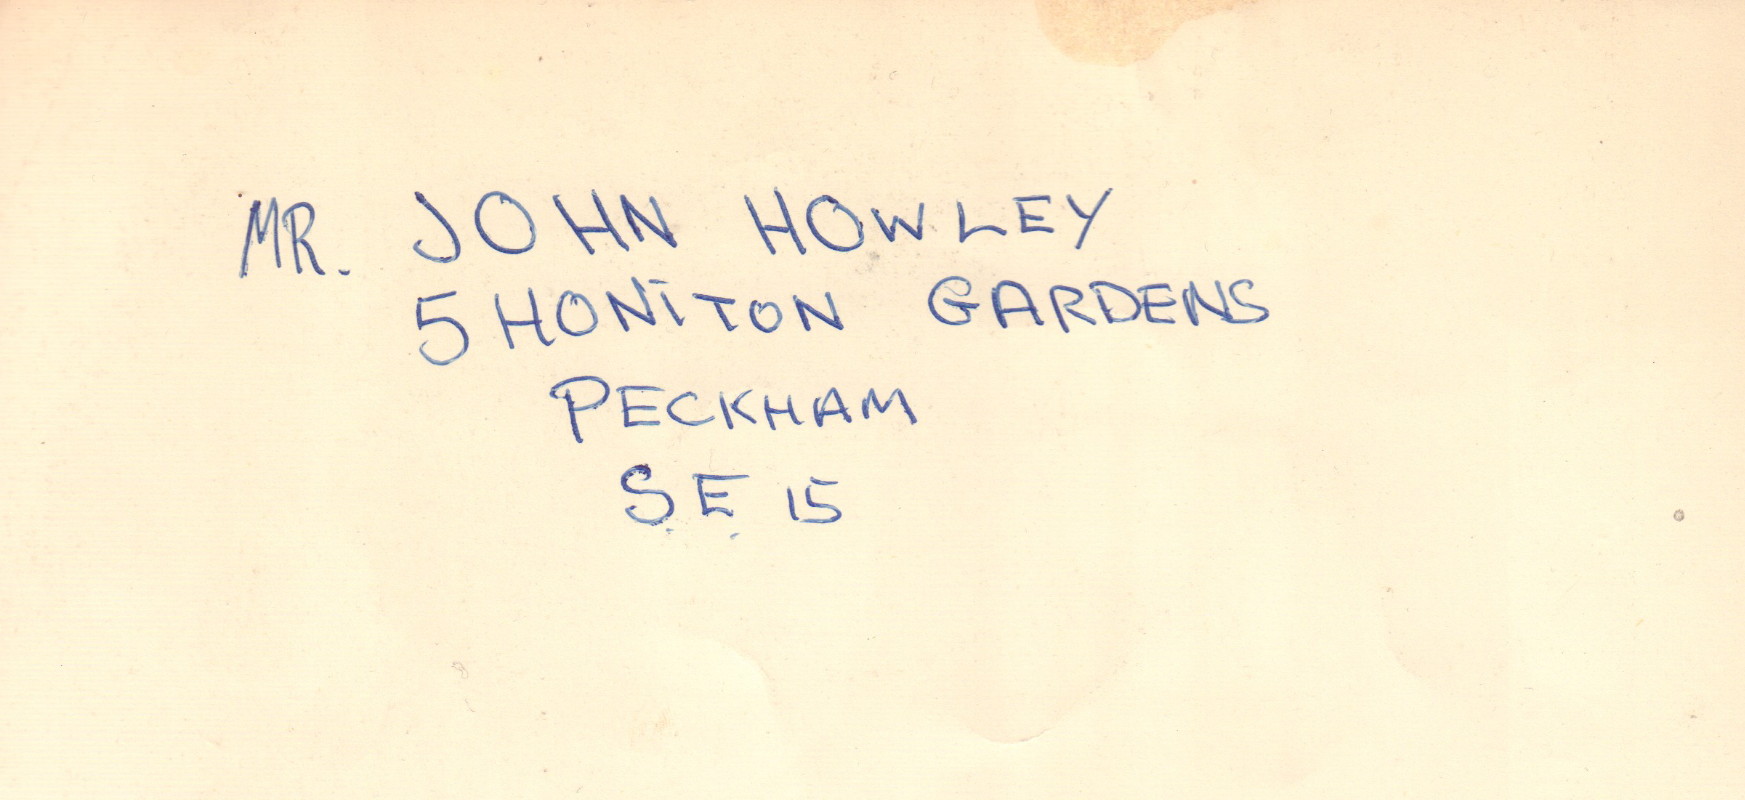 MR. JOHN HOWLEY
5 HONITON GARDENS
PECKHAM
S.E. 15